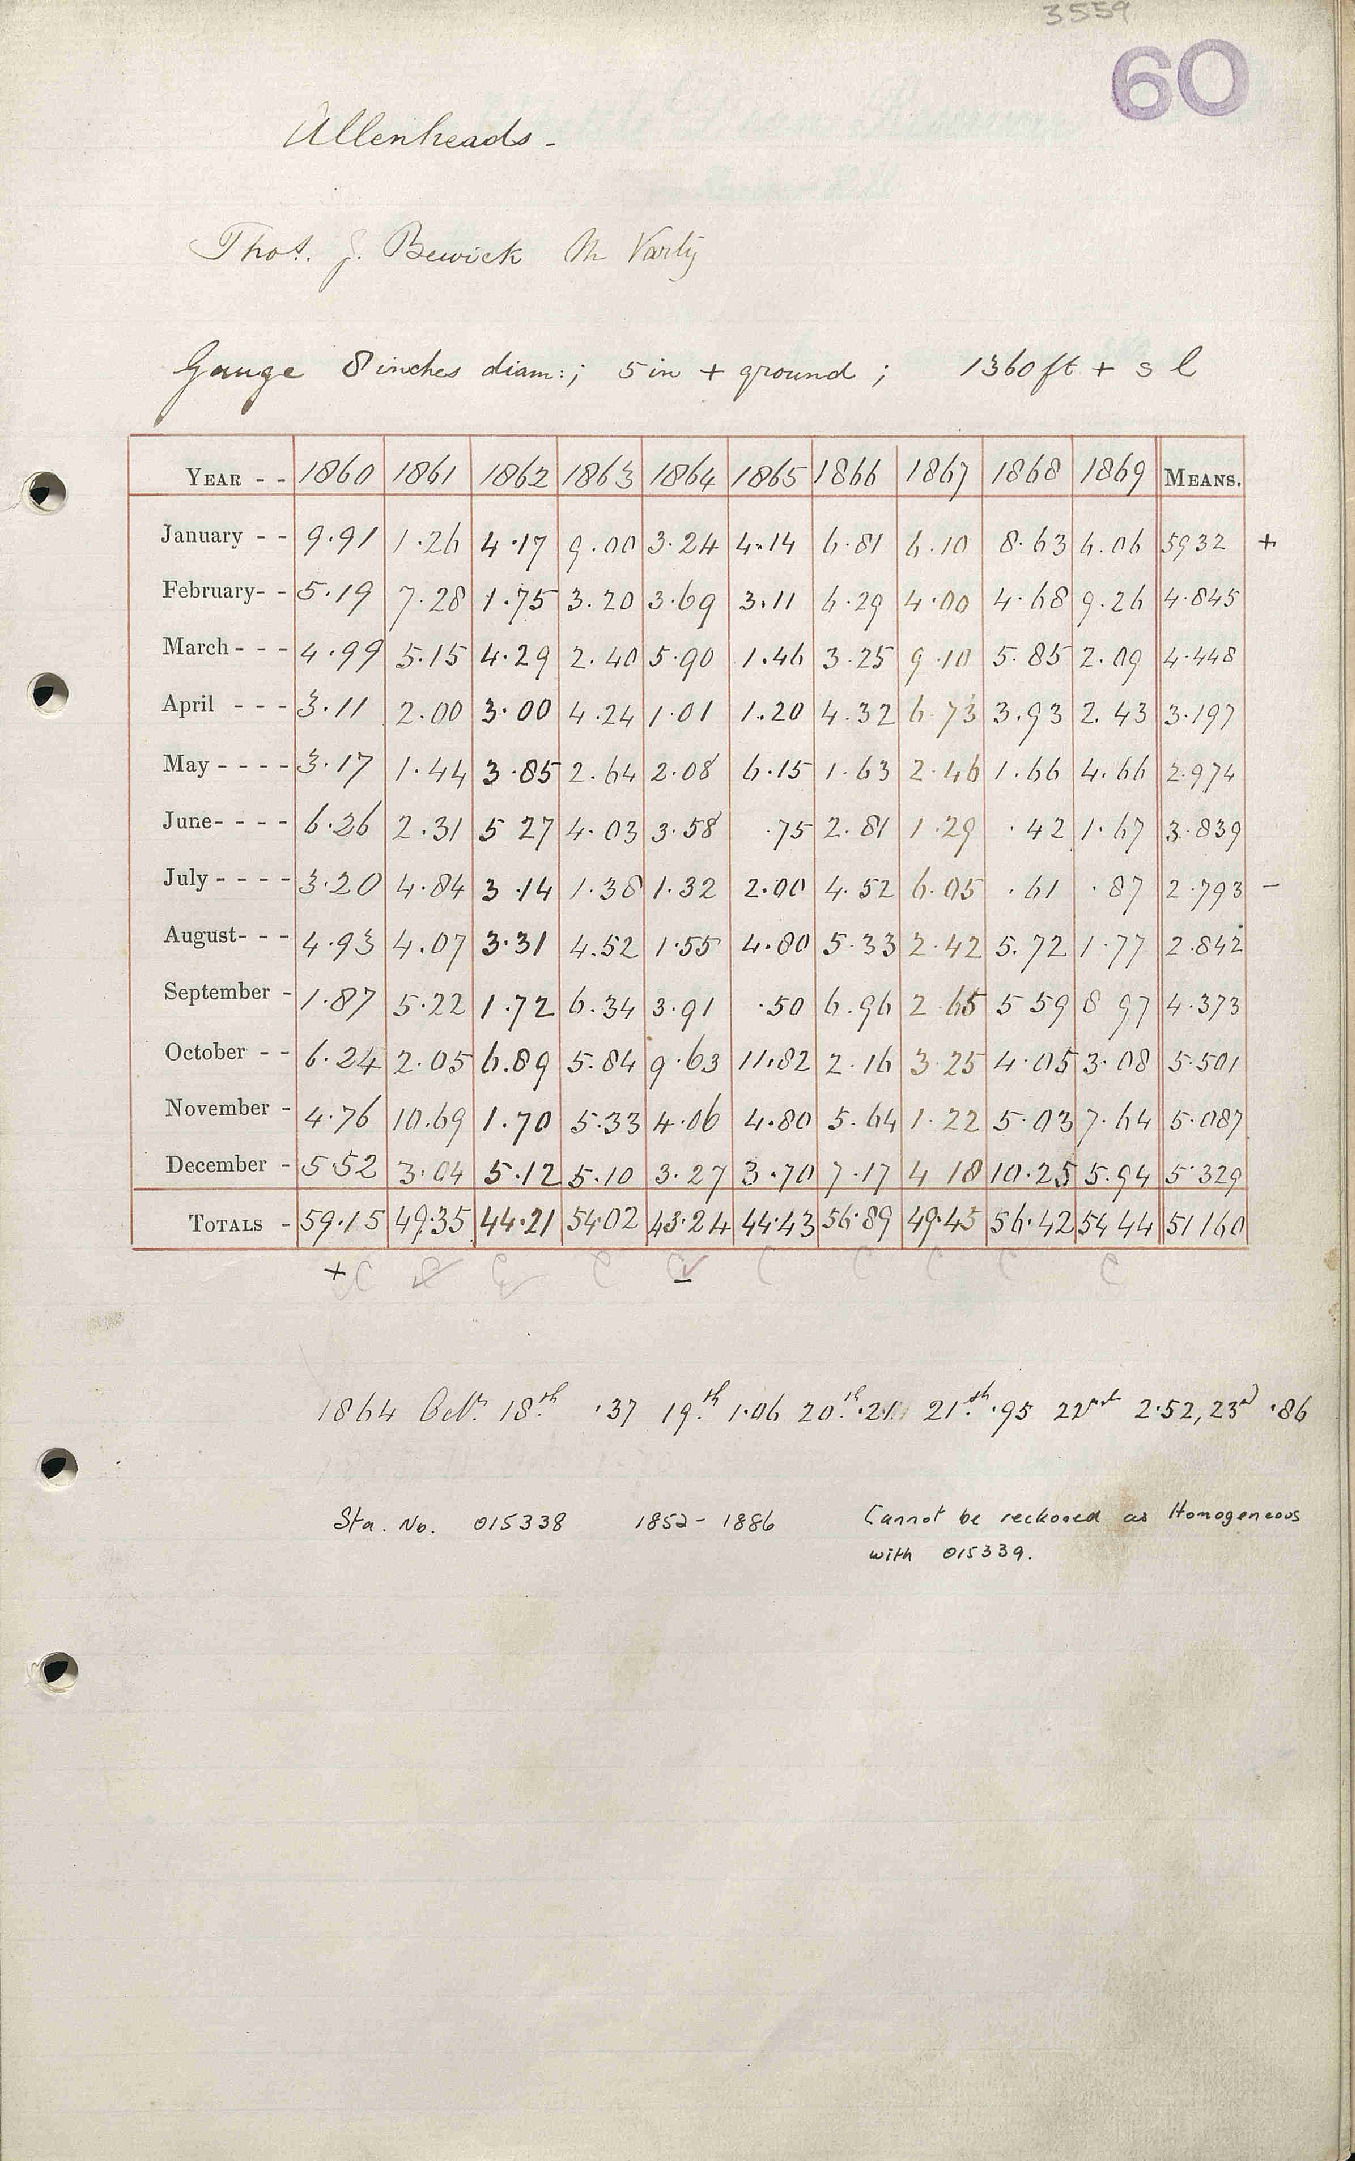 3559
60
Allenheads -
Thos. J. Bewick M Varty
Gauge 8 inches diam:; 5 in + ground; 1360 ft + s l
YEAR - - 1860 1861 1862 1863 1864 1865 1866 1867 1868 1869 MEANS.
January - - 9.91 1.26 4.17 9.00 3.24 4.14 6.81 6.10 8.63 6.06 5932 +
February- - 5.19 7.28 1.75 3.20 3.69 3.11 6.29 4.00 4.68 9.26 4.845
March - - - 4.99 5.15 4.29 2.40 5.90 1.46 3.25 9.10 5.85 2.09 4.448
April - - - 3.11 2.00 3.00 4.24 1.01 1.20 4.32 6.73 3.93 2.43 3.197
May - - - - 3.17 1.44 3.85 2.64 2.08 6.15 1.63 2.46 1.66 4.66 2.974
June- - - - 6.26 2.31 5 27 4.03 3.58 .75 2.81 1.29 .42 1.67 3.839
July - - - - 3.20 4.84 3.14 1.38 1.32 2.00 4.52 6.05 .61 .87 2.793 -
August- - - 4.93 4.07 3.31 4.52 1.55 4.80 5.33 2.42 5.72 1.77 2.842
September - 1.87 5.22 1.72 6.34 3.91 .50 6.96 2 65 5 59 8 97 4.373
October - - 6.24 2.05 6.89 5.84 9.63 11.82 2.16 3.25 4.05 3.08 5.501
November - 4.76 10.69 1.70 5.33 4.06 4.80 5.64 1.22 5.03 7.64 5.087
December - 5.52 3.04 5.12 5.10 3.27 3.70 7.17 4 18 10.25 5.94 5.329
TOTALS - 59.15 49.35 44.21 54.02 43.24 44.43 56.89 49.45 56.42 54 44 51 160
+ C C C C C C C C C
1864 Octr. 18th .37 19th 1.06 20th .21 21th .95 22nd 2.52, 23rd .86
Sta. No. 015338 1852 - 1886 Cannot be reckoned as Homogeneous
with 015339.